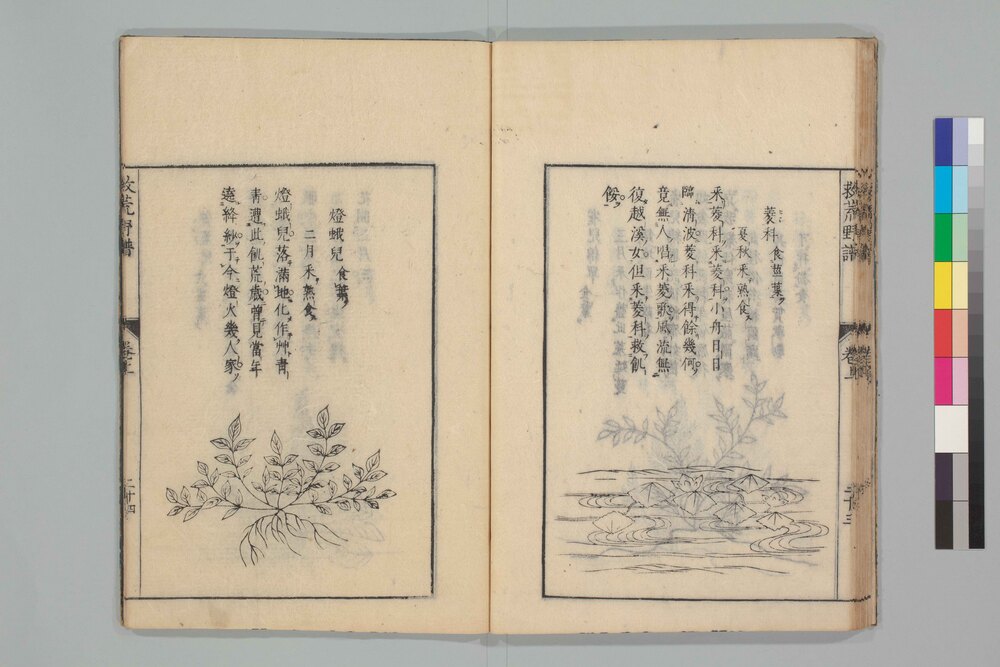 救荒野譜
卷上
二十三
菱科 食莖葉
夏秋采熟食
采菱科采菱科小舟日日
臨清波菱科采得餘幾何
竟無人唱采菱歌風流無
復越溪女但采菱科救飢
餒
燈蛾兒 食葉
二月采熟食
燈蛾兒落滿地化作艸青
青遭此飢荒歲曾見當年
遶絳紗于今燈火幾人家
救荒野譜
卷上
二十四